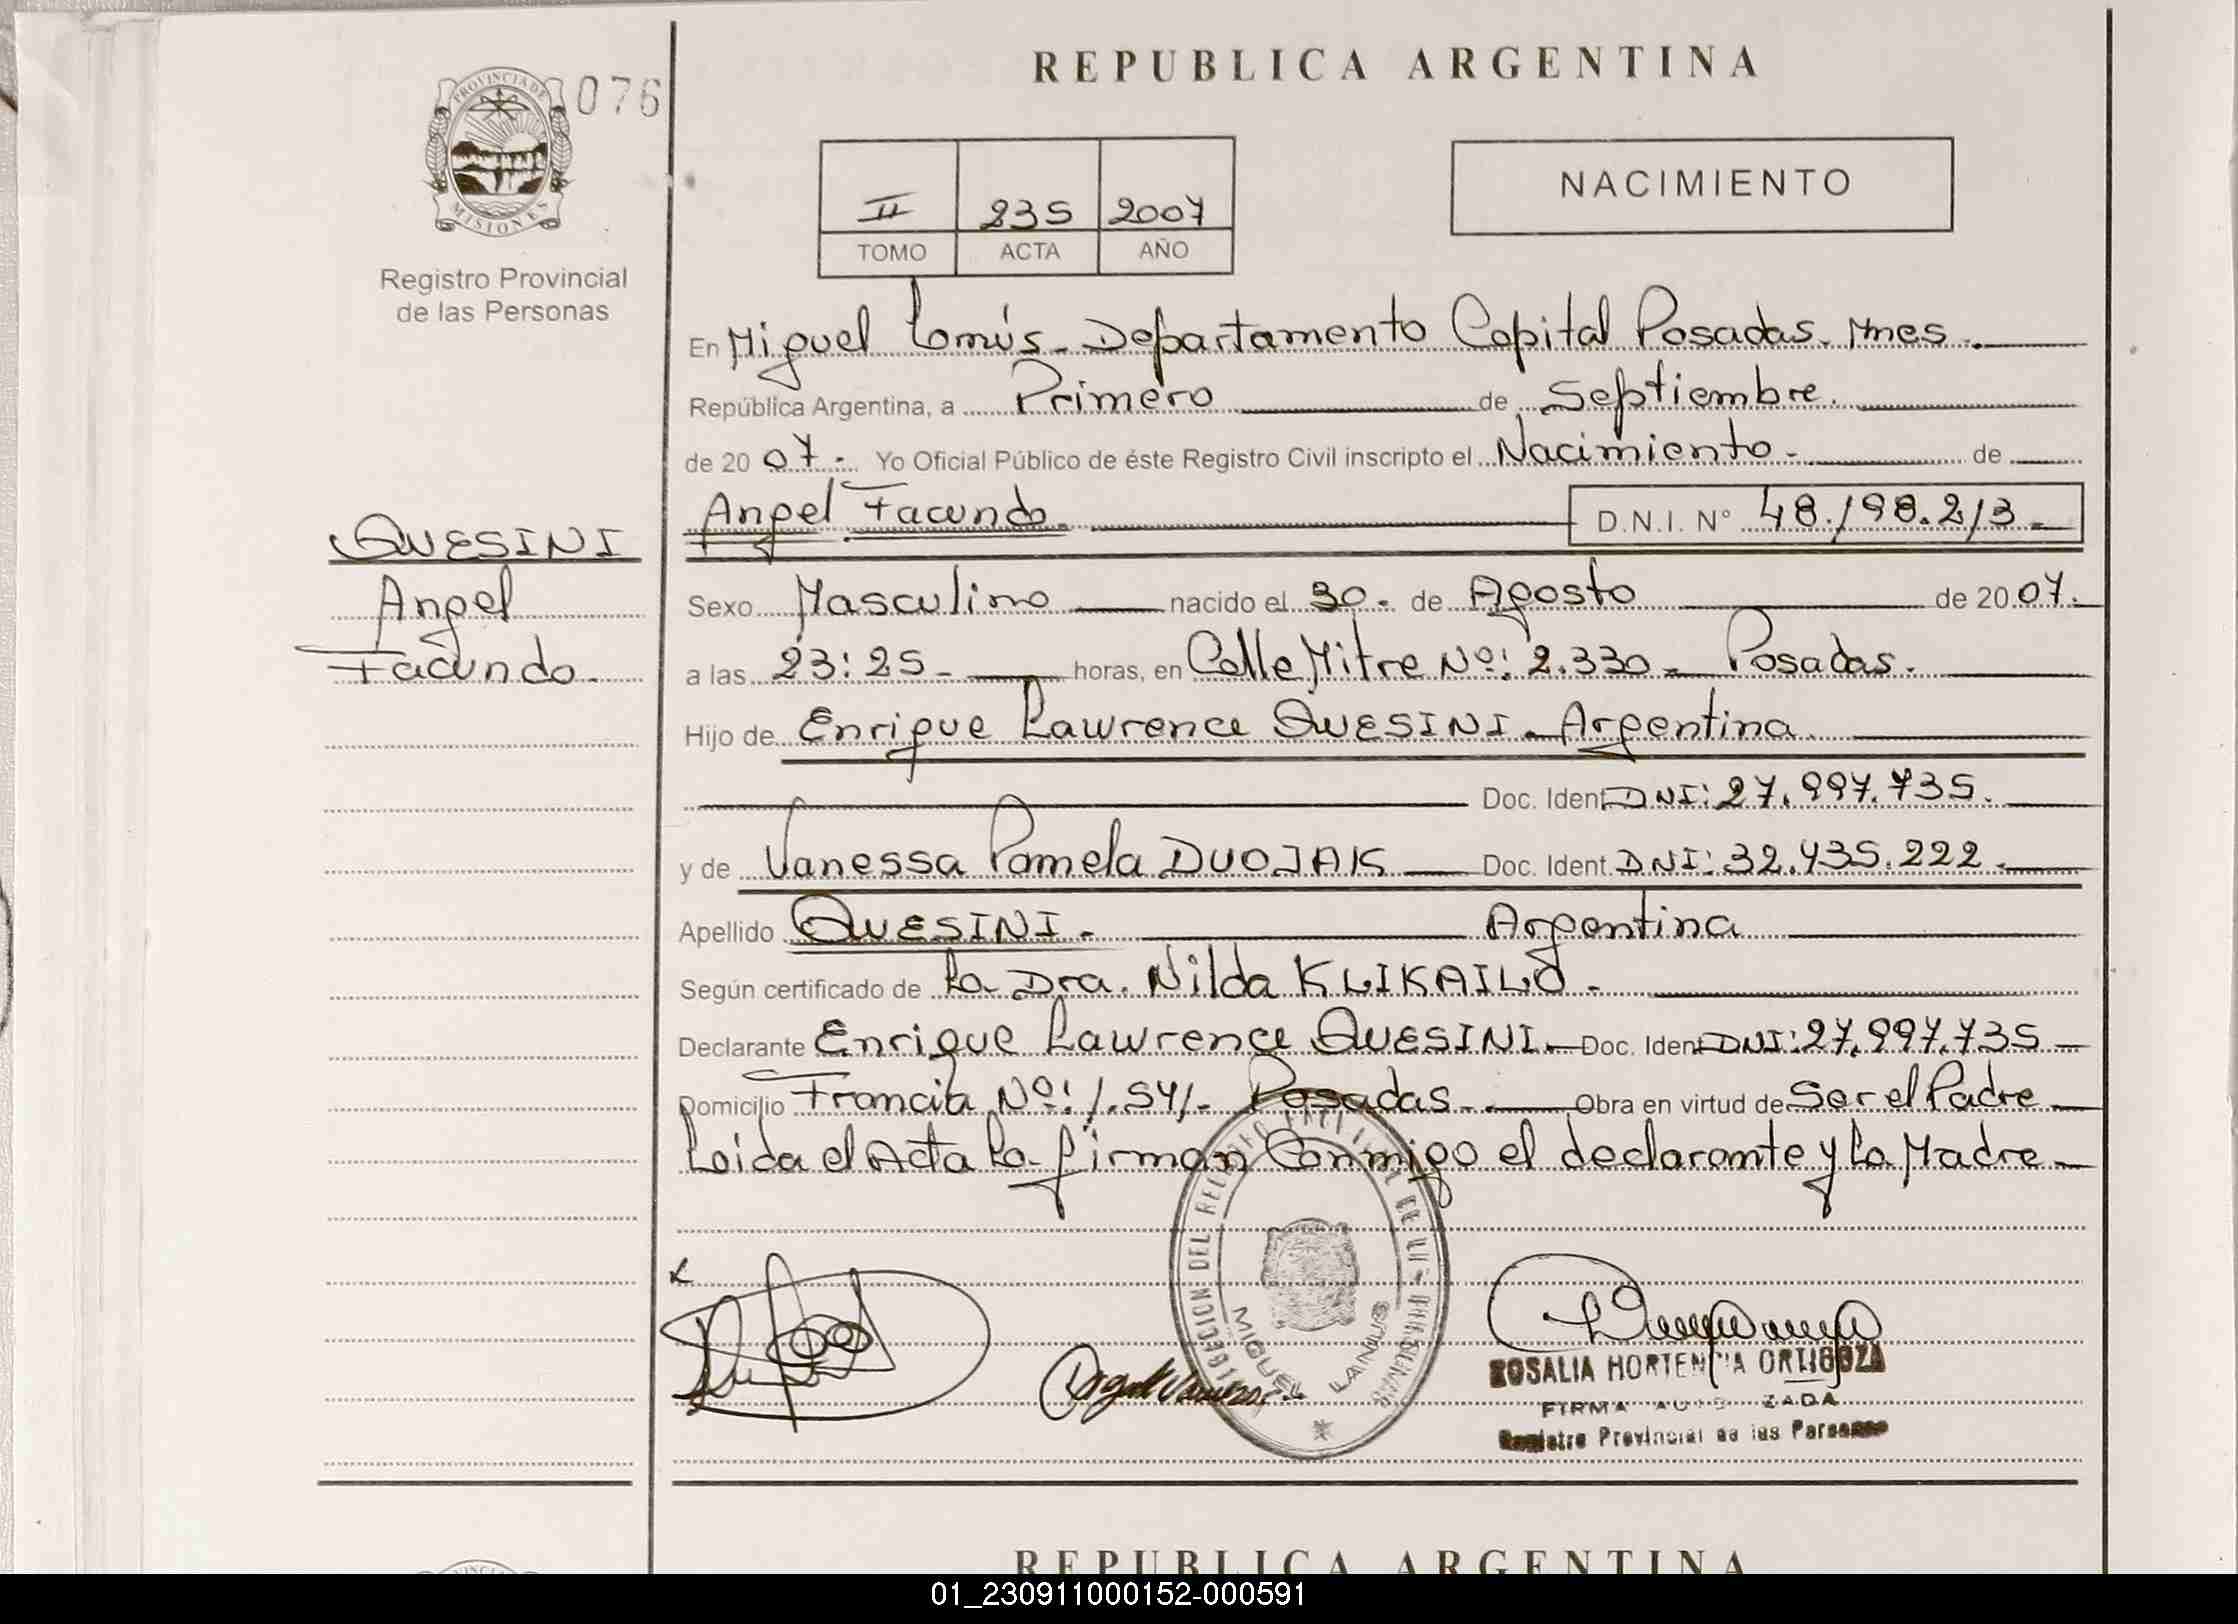 REPUBLICA ARGENTINA
PROVINCIA DE MISIONES
076
Registro Provincial
de las Personas
II 235 2007
TOMO ACTA AÑO
NACIMIENTO
En Miguel Lanús - Departamento Capital Posadas. Mnes.
República Argentina, a Primero de Septiembre.
de 20 07. Yo Oficial Público de éste Registro Civil inscripto el Nacimiento - de
Angel Facundo. D.N.I. N° 48.198.213
QUESINI
Angel
Facundo.
Sexo Masculino nacido el 30. de Agosto de 20 07.
a las 23:25 horas, en Calle Mitre Nº: 2.330 - Posadas.
Hijo de Enrique Lawrence QUESINI - Argentina
Doc. Ident DNI: 27.997.735.
y de Vanessa Pamela DUOJAK Doc. Ident. DNI: 32.435.222.
Apellido QUESINI. Argentina
Según certificado de La Dra. Nilda KLIKAILO.
Declarante Enrique Lawrence QUESINI. Doc. Ident DNI: 27.997.735
Domicilio Francia Nº: 1.541. Posadas. Obra en virtud de Ser el Padre
Leida el Acta la firman Conmigo el declarante y la Madre
MIGUEL LANUS
ROSALIA HORTENCIA ORTIGOZA
FIRMA AUTORIZADA
Registro Provincial de las Personas
REPUBLICA ARGENTINA
01_230911000152-000591